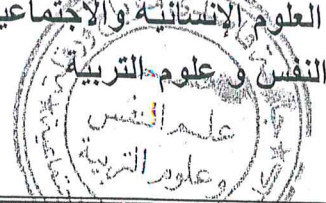 العلوم الإنسانية والاجتماعي
النفس و علوم التربية
علم النفس
وعلوم التربية